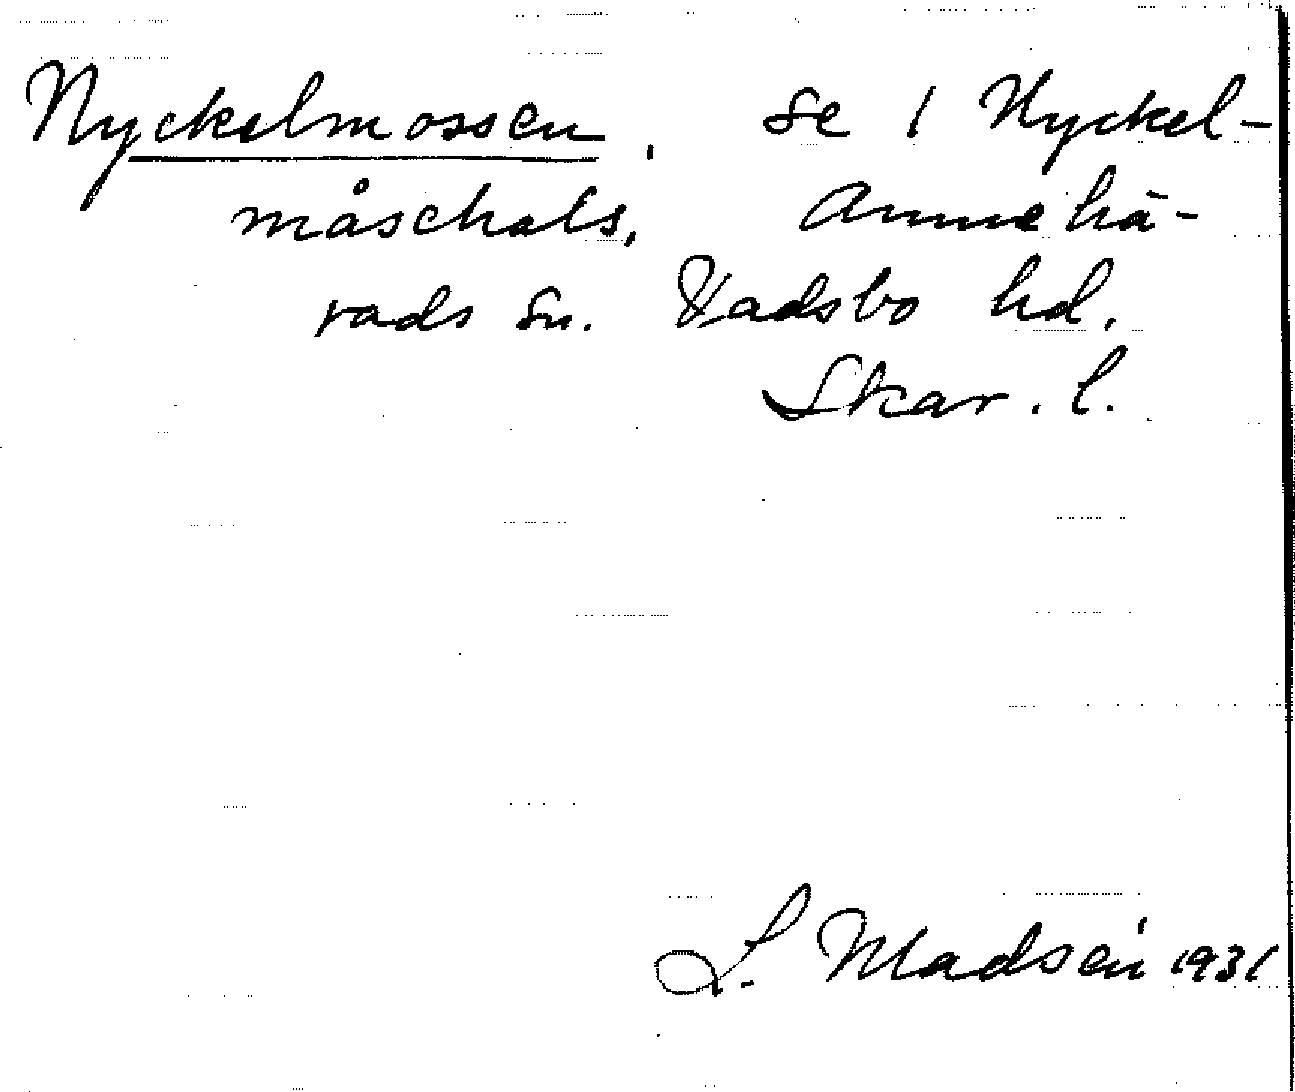 Nyckelmossen, se 1 Nyckel-
måschals, Annehä-
rads sn. Vadsbo hd.
Skar. l.
L. Madsén 1931